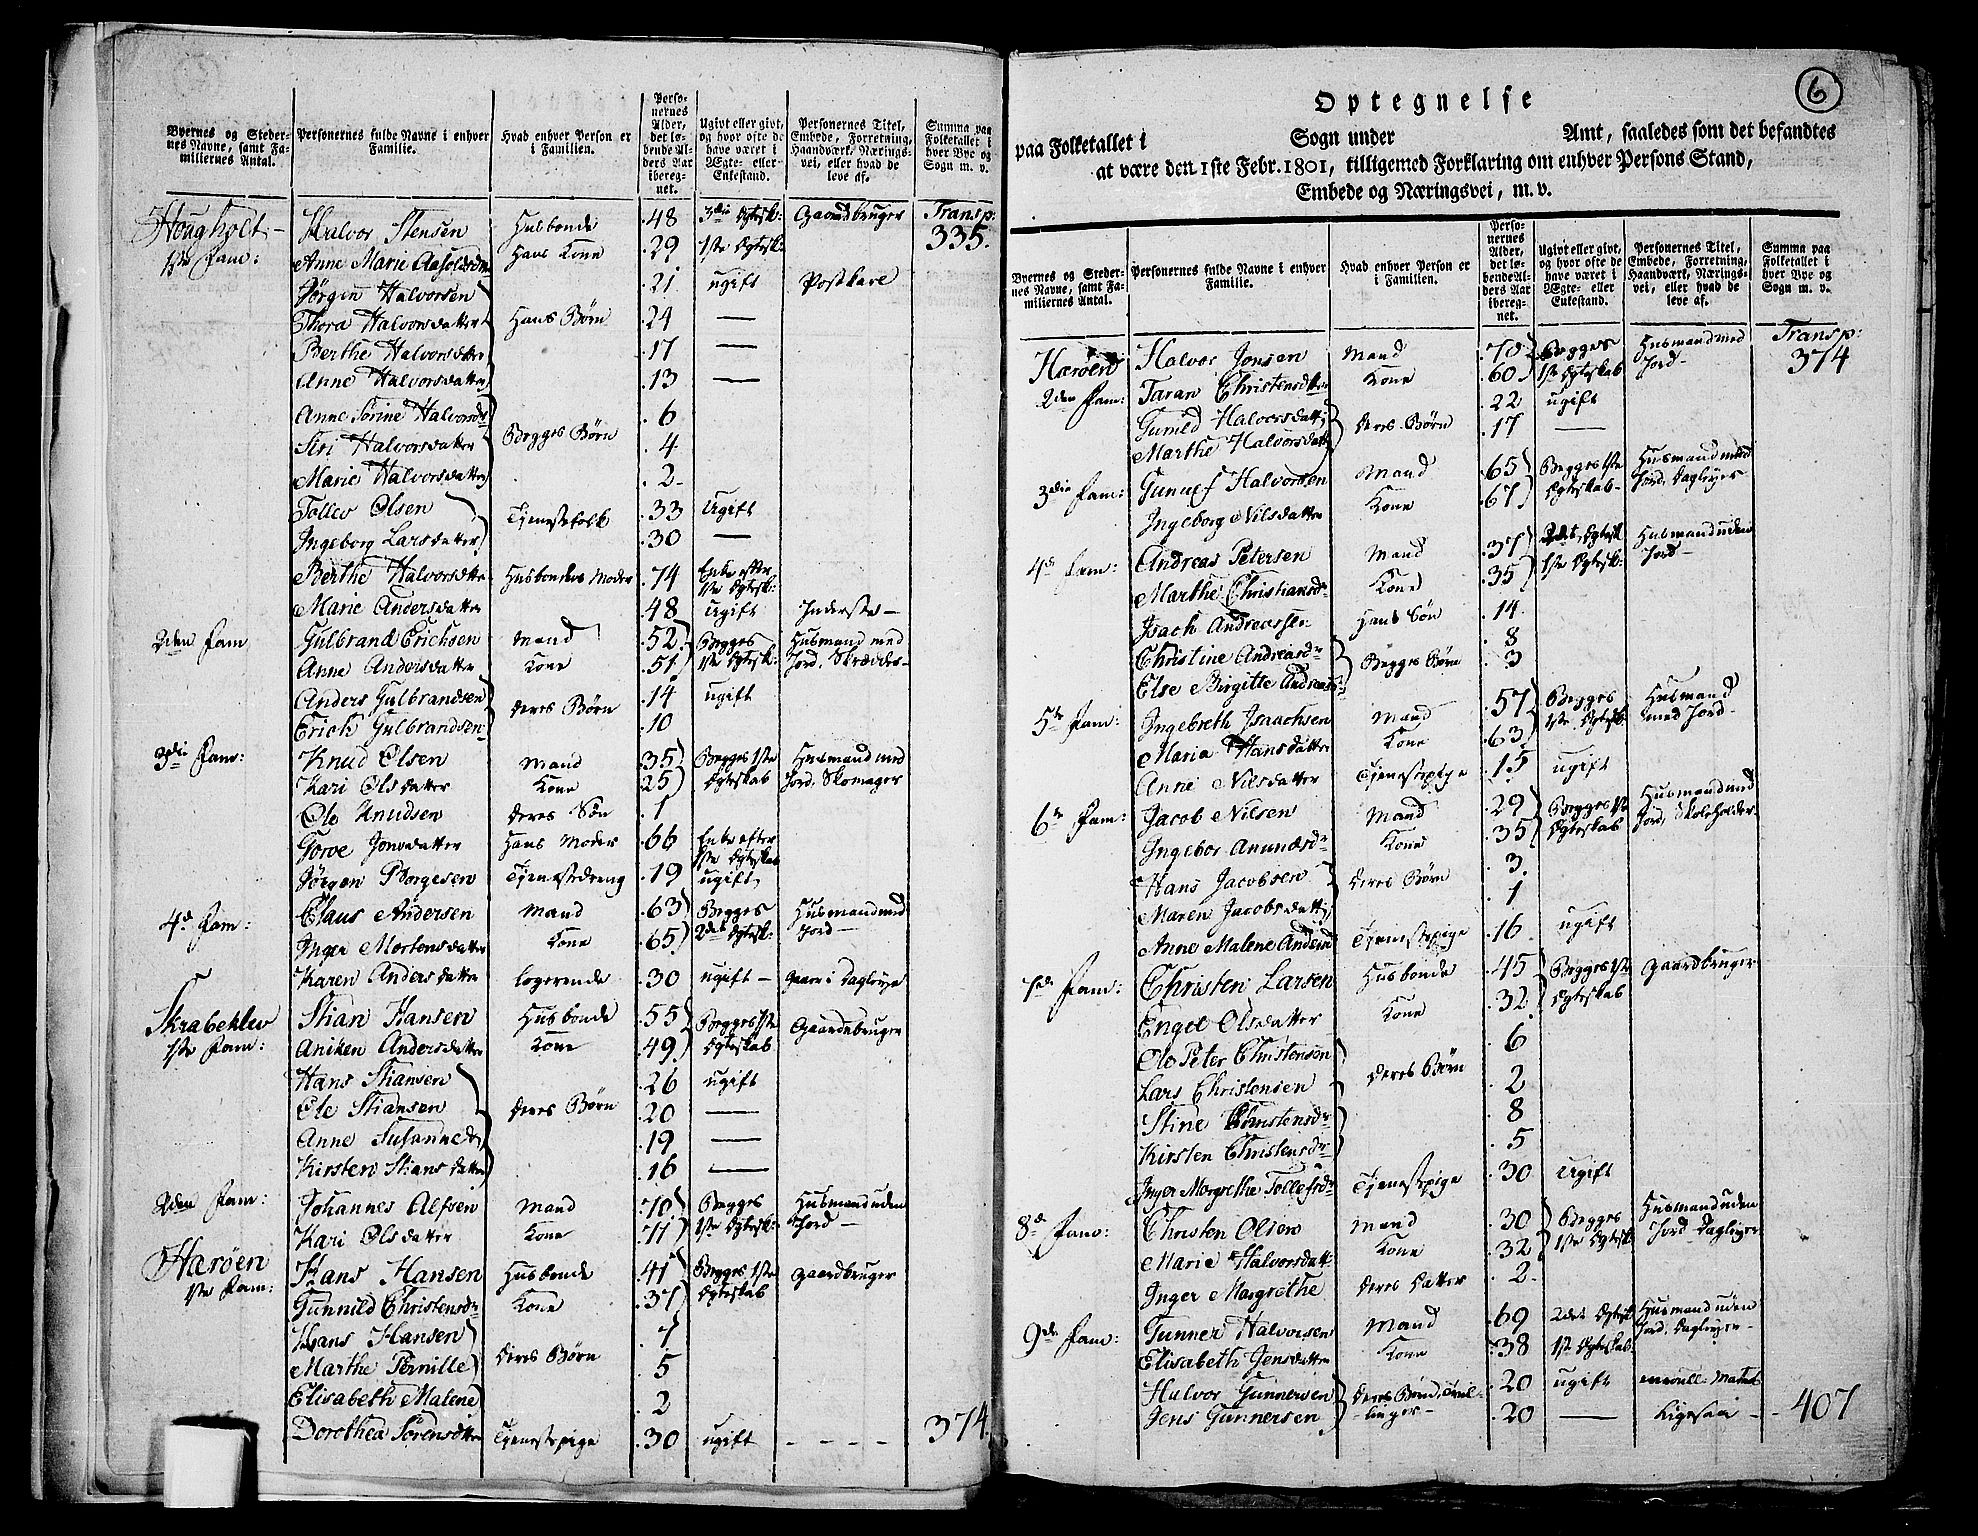 Byernes og Steder-
nes Navne, samt Fa-
miliernes Antal.
Personernes fulde Navne i enhver
Familie.
Hvad enhver Person er
i Familien.
Perso-
nernes
Alder,
det lø-
bende Al-
ders Aar
iberegnet-
net.
Ugivt eller givt,
og hvor ofte de
have været i
Ægte- eller
Enkestand.
Personernes Titel,
Embede, Forretning,
Haandværk, Nærings-
vei, eller hvad de
leve af.
Summa paa
Folketallet i
hver Bye og
Sogn m. v.
Hougholt - Halvor Stensen Husbonde 48 3die Egtesk: Gaardbruger Transp:
1ste Fam: Anne Marie Hans Kone 29 1ste Egtesk: 335.
Jørgen Halvorsen 21 ugift Postkare
Thora Halvorsdatter Hans Børn 24 —
Berthe Halvorsdatter 17 —
Anne Halvorsdatter 13 —
Anne Sørine Halvorsdr 6
Siri Halvorsdatter Begges Børn 4
Marie Halvorsdatter 2
Tollev Olsen Tjenestefolk 33 Ugift
Ingeborg Larsdatter 30 —
Berthe Halvorsdatter Husbondens Moder 74 Enke efter
1ste Egtesk:
Marie Andersdatter 48 Ugift Inderste —
2den Fam Gulbrand Erichsen Mand 52 Begges Husmand med
Anne Andersdatter Kone 51 1ste Egtesk: Jord, Skrædder
Anders Gulbrandsen deres Børn 14 ugift
Erich Gulbrandsen 10
3die Fam: Knud Olsen Mand 35 Begges 1ste Husmand med
Kari Olsdatter Kone 25 Egteskab Jord, Skomager
Ole Knudsen deres Søn 1
Torve Jonsdatter Hans Moder 66 Enke efter
1ste Egteskab
Jørgen Borgesen Tjenestedreng 19 ugift
4de Fam: Claus Andersen Mand 63 Begges Husmand med
Inger Mortensdatter Kone 65 2det Egtesk: Jord —
Karen Andersdatter logerende 30 ugift — Gaar i Dagleye
Skrabeklev Stian Hansen Husbonde 55 Begges 1ste Gaardbruger
1ste Fam: Aniken Andersdatter Kone 49 Egteskab
Hans Stiansen 26 ugift
Ole Stiansen deres Børn 20 —
Anne Susanne 19 —
Kirsten Stiansdatter 16 —
2den Fam: Johannes Alfsen Mand 70 Begges Husmand uden
Kari Olsdatter Kone 71 1ste Egtesk: Jord —
Harøen Hans Hansen Husbonde 41 Begges 1ste Gaardbruger
1ste Fam: Gunnild Christensdr Kone 37 Egteskab
Hans Hansen 7
Marthe Pernille deres Børn 5
Elisabeth Malene 2
Dorothea Sørensdatter Tjenestepige 30 ugift - - - - 374.
6
Optegnelse
paa Folketallet i Sogn under Amt, saaledes som det befandtes
at være den 1ste Febr. 1801, tilligemed Forklaring om enhver Persons Stand,
Embede og Næringsvei, m. v.
Byernes og Steder-
nes Navne, samt Fa-
miliernes Antal.
Personernes fulde Navne i enhver
Familie.
Hvad enhver Person er
i Familien.
Perso-
nernes
Alder,
det lø-
bende Al-
ders Aar
ibereg-
net.
Ugivt eller givt,
og hvor ofte de
have været i
Ægte- eller
Enkestand.
Personernes Titel,
Embede, Forretning,
Haandværk, Nærings-
vei, eller hvad de
leve af.
Summa paa
Folketallet i
hver Bye og
Sogn m. v.
Harøen Halvor Jonsen Mand 70 Begges Husmand med Transp:
2den Fam: Taran Christensdatter Kone 60 1ste Egteskab Jord — 374
Gunild Halvorsdatter deres Børn 22 ugift
Marthe Halvorsdatter 17 —
3die Fam: Gunulf Halvorsen Mand 65 Begges 1ste Husmand med
Ingeborg Nilsdatter Kone 67 Egteskab Jord, Dagleyer
4de Fam: Andreas Petersen Mand 37 2det Egtesk Husmand uden
Marthe Christiansdr Kone 35 1ste Egtesk: Jord —
Isach Andreassen Hans Søn 14
Christine Andreasdr Begges Børn 8
Else Birgitte Andreasdr 3
5te Fam: Ingebreth Isaachsen Mand 57 Begges Husmand
Maria Hansdatter Kone 63 1ste Egtesk: med Jord
Anne Nilsdatter Tjenestepige 15 ugift
6te Fam: Jacob Nilsen Mand 29 Begges 1ste Husmand med
Ingebor Anundsdr Kone 35 Egteskab Jord, Skoleholder
Hans Jacobsen deres Børn 3
Maren Jacobsdatter 1
Anne Malene Tjenestepige 16 ugift
7de Fam: Christen Larsen Husbonde 45 Begges 1ste Gaardbruger
Engel Olsdatter Kone 32 Egteskab
Ole Peter Christensen 6
Lars Christensen deres Børn 2
Stine Christensdr 8
Kirsten Christensdr 5
Inger Margrethe Tollefsdr Tjenestepige 30 Ugift
8de Fam: Christen Olsen Mand 30 Begges Husmand uden
Marie Halvorsdatt Kone 32 1ste Egtesk Jord Dagleyer
Inger Margrethe deres Datter 2
9de Fam: Gunner Halvorsen Mand 69 2det Egtesk Husmand uden
Elisabeth Jensdatter Kone 38 1ste Egteskab Jord, Dagleyer
Halvor Gunnersen deres Børn, Tvil- 20 ugift enroull: Matros
Jens Gunnersen -linger- 20 — Ligesaa - 407